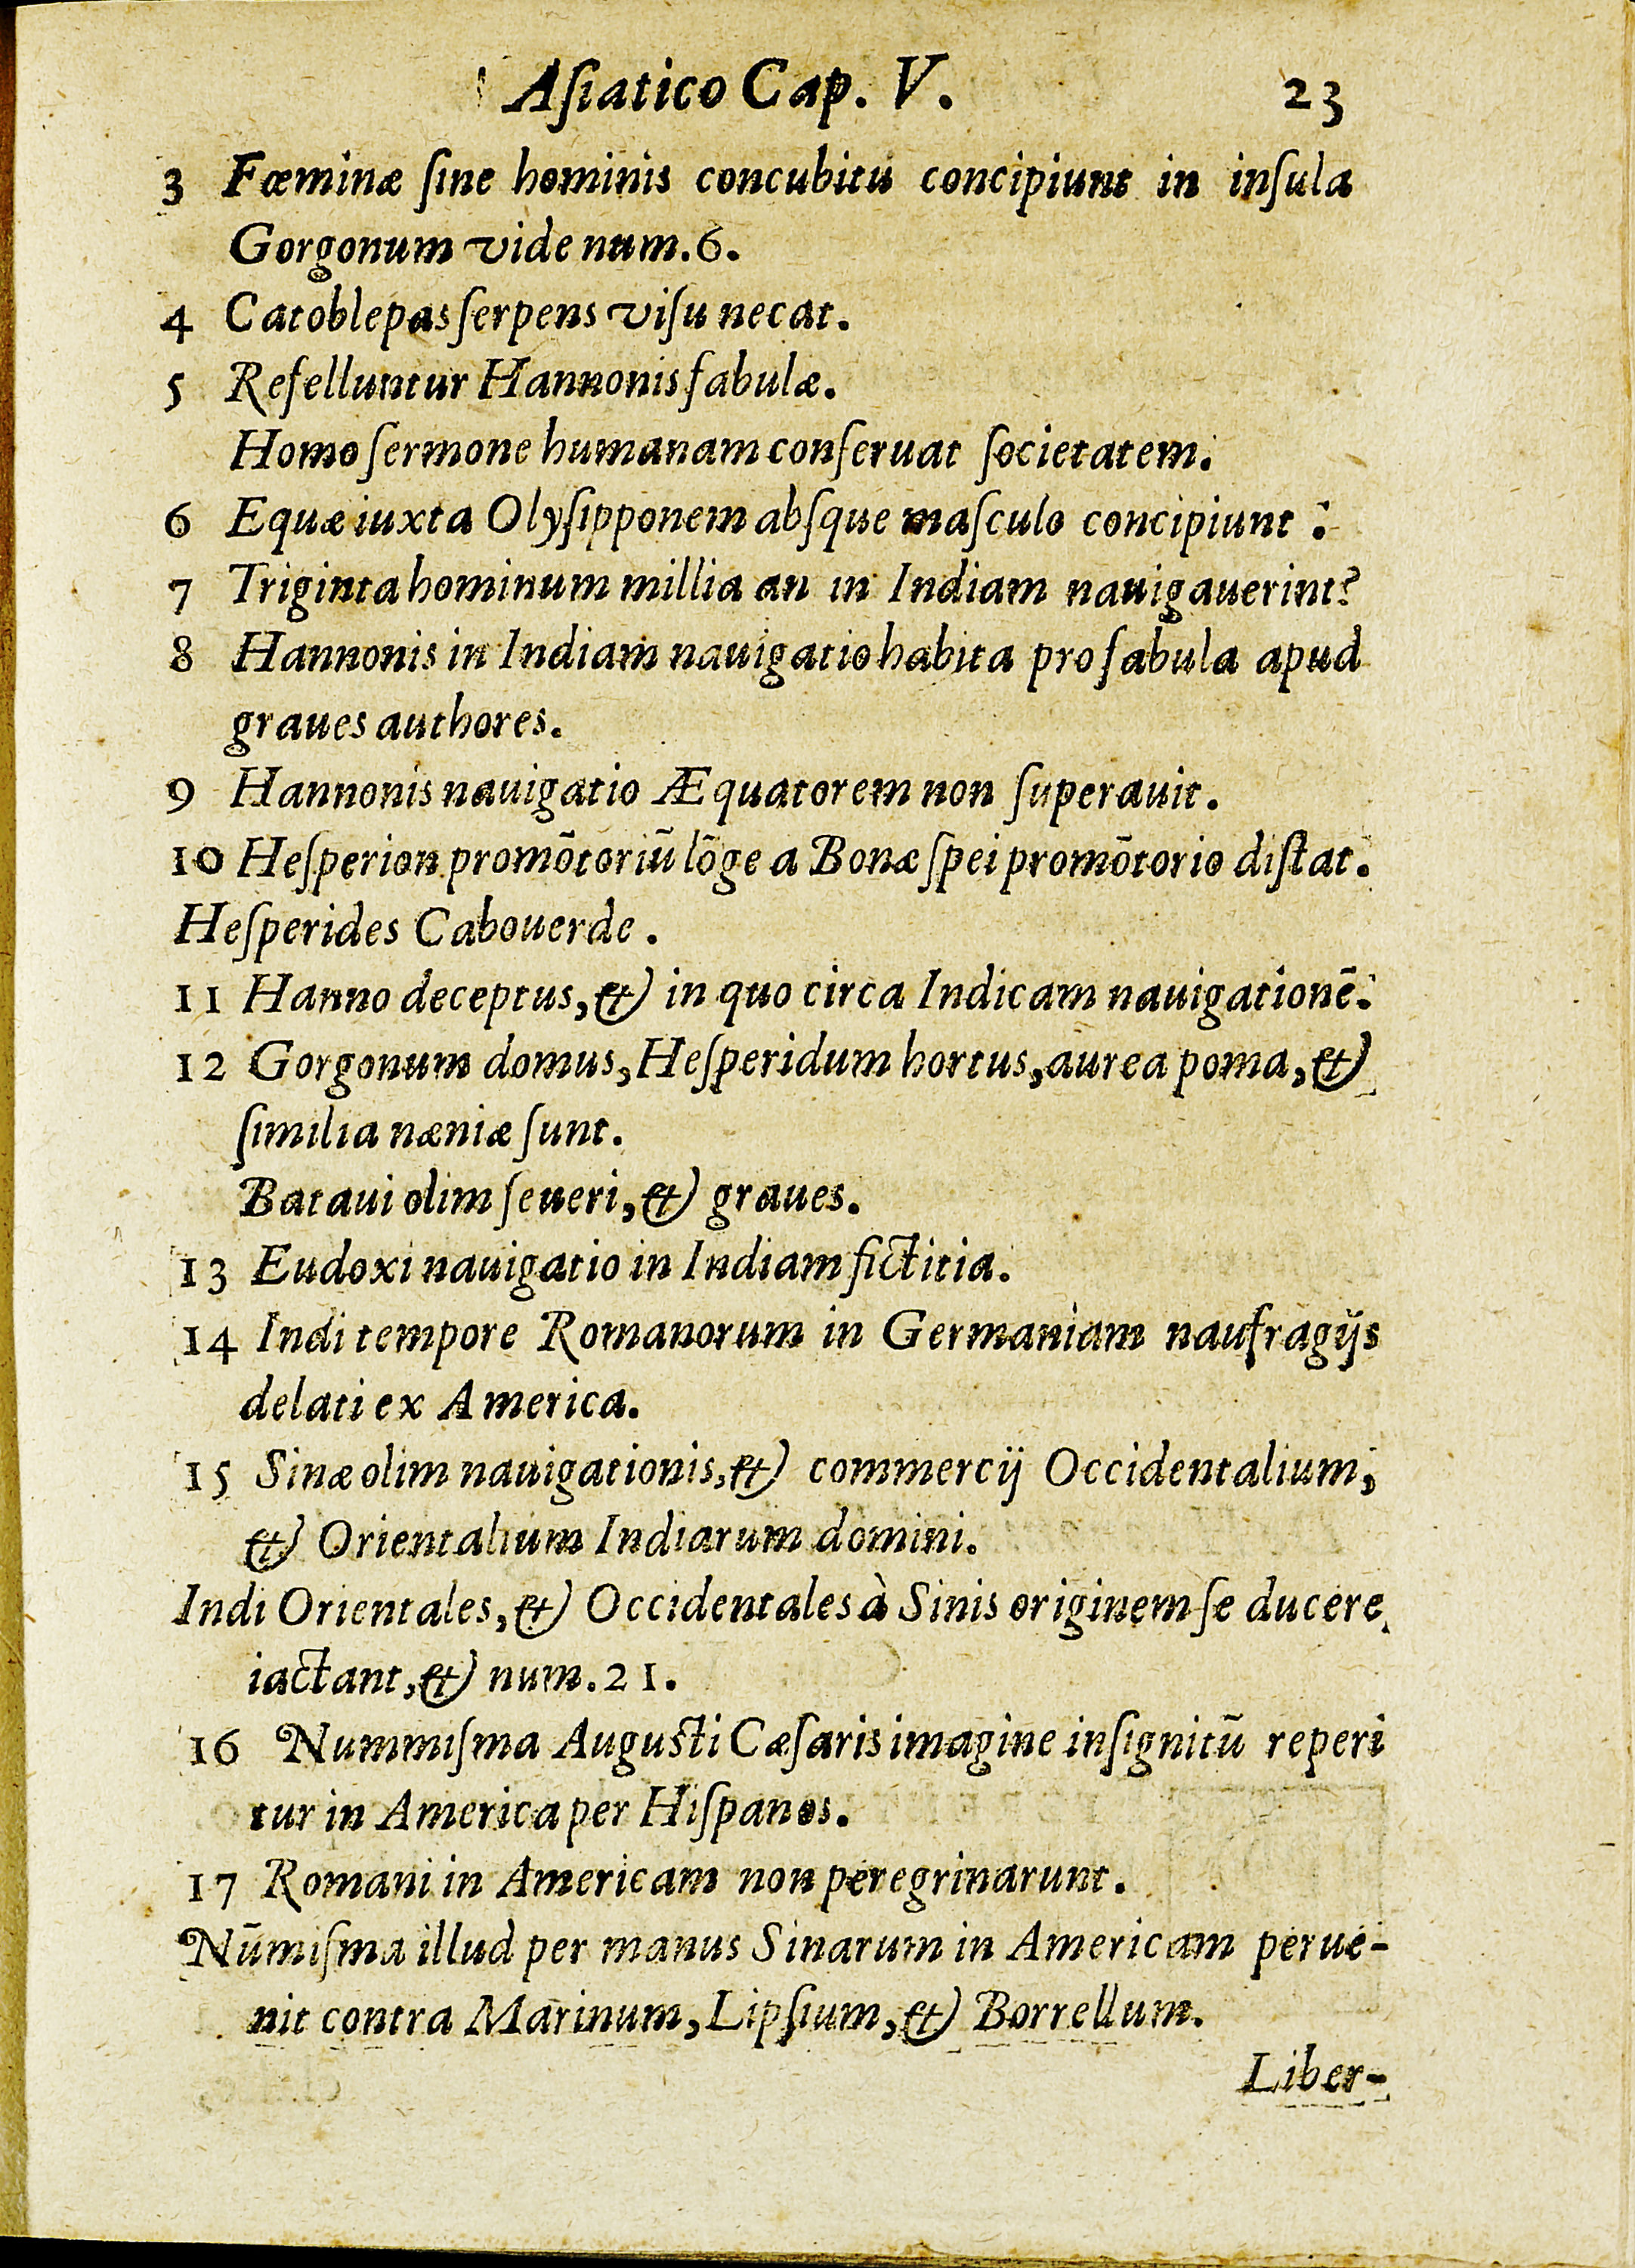 Aſiatico Cap. V. 23
3 Fœminæ ſine hominis concubitu concipiunt in inſula
Gorgonum vide num.6.
4 Catoblepas ſerpens viſu necat.
5 Refelluntur Hannonis fabulæ.
Homo ſermone humanam conſeruat ſocietatem.
6 Equæ iuxta Olyſipponem abſque maſculo concipiunt.
7 Triginta hominum millia an in Indiam nauigauerint?
8 Hannonis in Indiam nauigatio habita pro fabula apud
graues authores.
9 Hannonis nauigatio Æquatorem non ſuperauit.
10 Heſperion promōtoriū lōge a Bonæ ſpei promōtorio diſtat.
Heſperides Cabouerde.
11 Hanno deceptus, & in quo circa Indicam nauigationē.
12 Gorgonum domus, Heſperidum hortus, aurea poma, &
ſimilia næniæ ſunt.
Bataui olim ſeueri, & graues.
13 Eudoxi nauigatio in Indiam fictitia.
14 Indi tempore Romanorum in Germaniam naufragijs
delati ex America.
15 Sinæ olim nauigationis, & commercij Occidentalium,
& Orientalium Indiarum domini.
Indi Orientales, & Occidentales à Sinis originem ſe ducere
iactant, & num.21.
16 Nummiſma Auguſti Cæſaris imagine inſignitū reperi
tur in America per Hiſpanos.
17 Romani in Americam non peregrinarunt.
Nūmiſma illud per manus Sinarum in Americam perue-
nit contra Marinum, Lipſium, & Borrellum.
Liber-